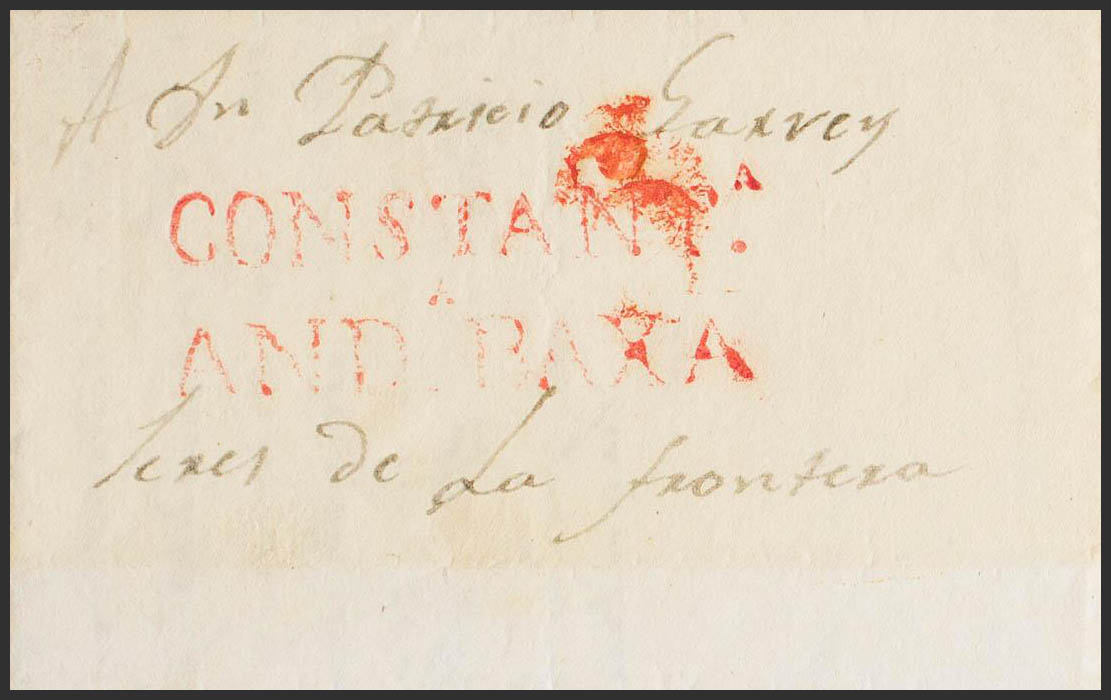 A Dn Patricio Garvey
CONSTANT.A
AND.A BAXA
Seres de La frontera